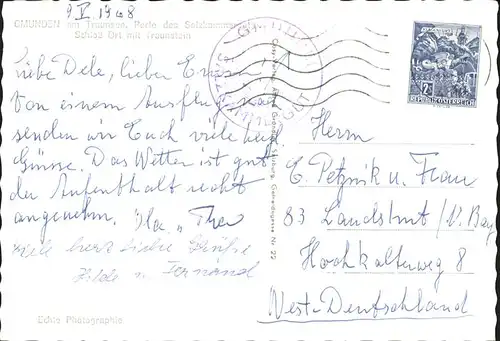 9 V 1968
GMUNDEN am Traunsee, Perle des Salzkammer
Schloß Ort mit Traunstein
Liebe Dele, lieber Erwin
Von einem Ausflug
senden wir Euch viele herzl
Grüsse. Das Wetter ist gut
der Aufenthalt recht
angenehm.
viele herzliche Grüße
Hilde u Fernand
GMUNDEN
SALZKAMMERGUT
2
REPUBLIK ÖSTERREICH
Salzburg, Nr. 22
Herrn
E. Petznik u. Frau
83 Landshut / N. Bay
Hochkalterweg 8
West-Deutschland
Echte Photographie